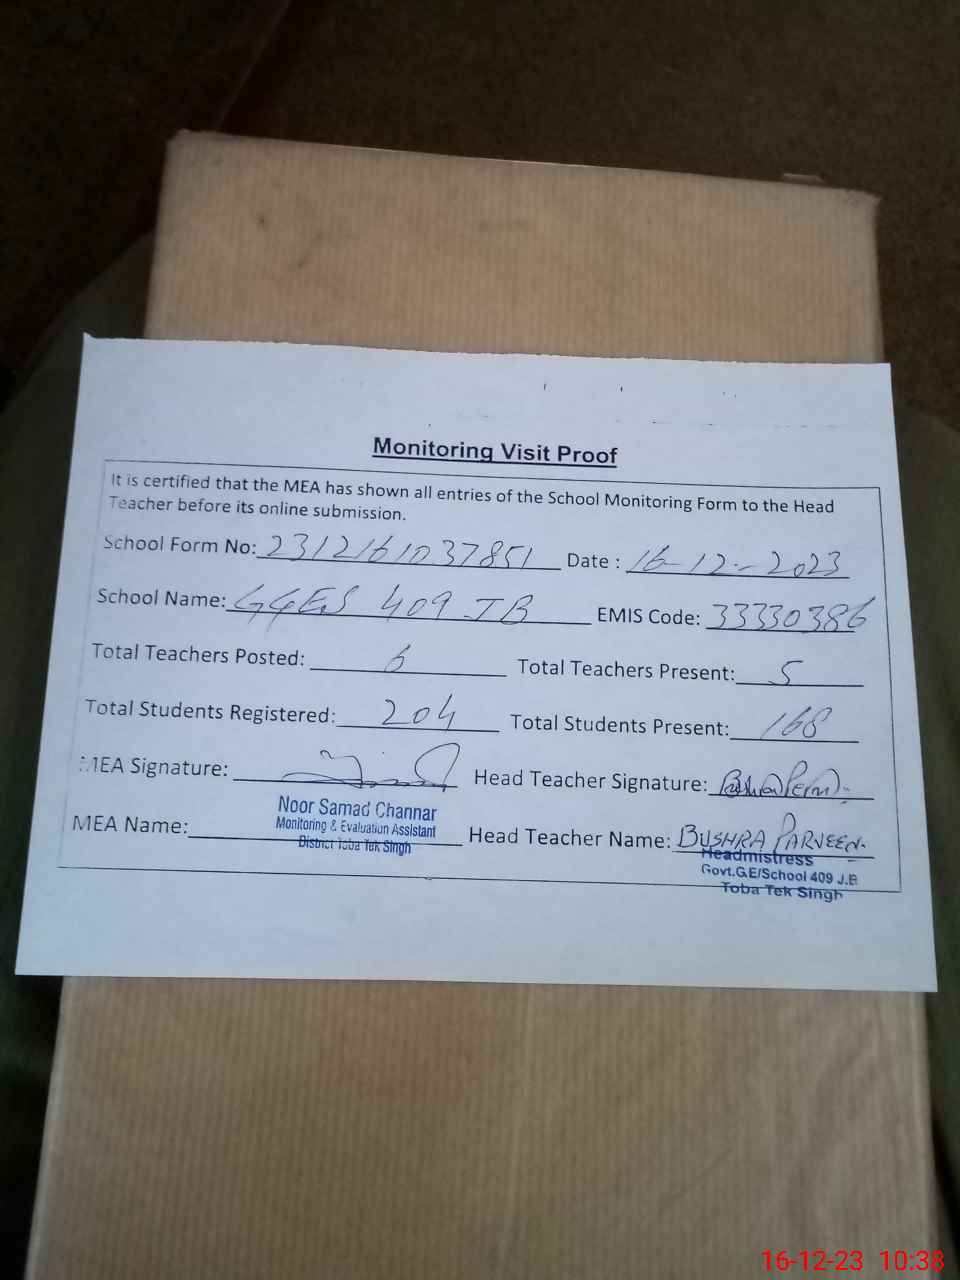 Monitoring Visit Proof
It is certified that the MEA has shown all entries of the School Monitoring Form to the Head
Teacher before its online submission.
School Form No: 2312161037851 Date : 16-12-2023
School Name: GGES 409 JB EMIS Code: 33330386
Total Teachers Posted: 6 Total Teachers Present: 5
Total Students Registered: 204 Total Students Present: 168
MEA Signature: Head Teacher Signature:
MEA Name: Noor Samad Channar
Monitoring & Evaluation Assistant
District Toba Tek Singh
Head Teacher Name: BUSHRA PARVEEN.
Headmistress
Govt.G.E/School 409 J.B
Toba Tek Singh
16-12-23 10:38